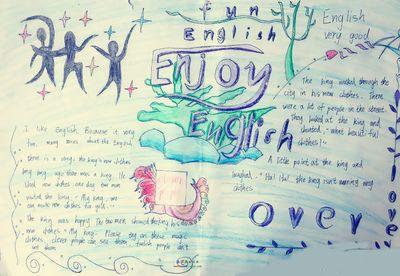 fun
English
Enjoy
English
English
very good
I like English. Because it very
fun, many more about the English
there is a song: the king's new clothes
long long ago there was a king. He
liked new clothes one day two men
visited the king. "My king, we
can make new clothes for you."
The king was happy. The two men showed the king his
new clothes. "My king. Please try on these magic
clothes. clever people can see them. foolish people don't
see them.
The king walked through the
city in his new clothes. There
were a lot of people in the street.
They looked at the king and
shouted, "What beautiful
clothes!"
A little point at the king and
laughed, "Ha! Ha! the king isn't wearing any
clothes.
over
love